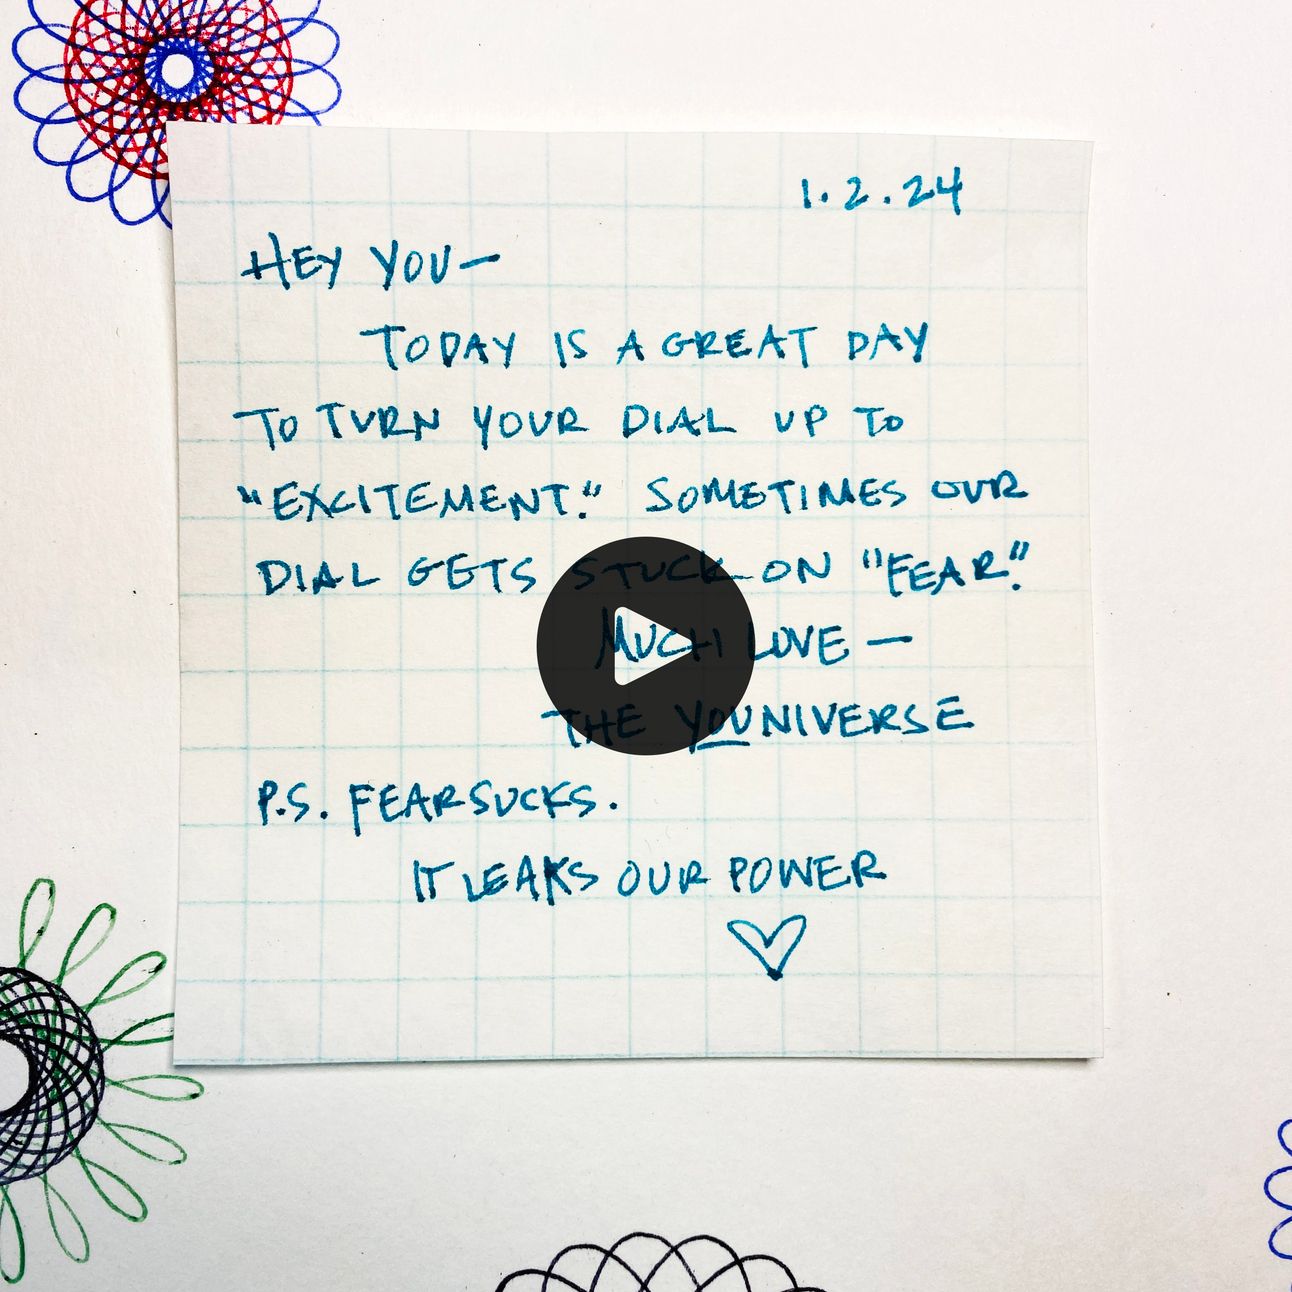 1.2.24
HEY YOU—
TODAY IS A GREAT DAY
TO TURN YOUR DIAL UP TO
"EXCITEMENT." SOMETIMES OUR
DIAL GETS STUCK ON "FEAR."
MUCH LOVE —
THE YOUNIVERSE
P.S. FEAR SUCKS.
IT LEAKS OUR POWER